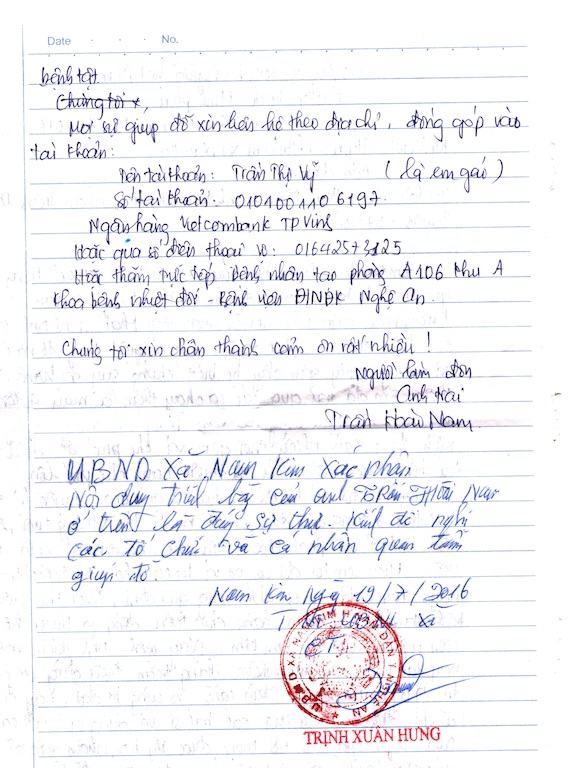 Date . . . No.
bệnh tật.
Chúng tôi
Mọi sự giúp đỡ xin liên hệ theo địa chỉ, đóng góp vào
tài khoản:
Tên tài khoản: Trần Thị Vỹ (là em gái)
Số tài khoản: 0101001106197.
Ngân hàng Vietcombank TP Vinh
Hoặc qua số điện thoại : 01642573125
Hoặc thăm trực tiếp bệnh nhân tại phòng A106 Khu A
Khoa bệnh nhiệt đới - Bệnh viện ĐNĐK Nghệ An.
Chúng tôi xin chân thành cảm ơn rất nhiều!
Người làm đơn
Anh trai
Trần Hoài Nam
UBND Xã Nam Kim xác nhận
Nội dung trình bày của anh Trần Hoài Nam
ở trên là đúng sự thật. Kính đề nghị
các tổ chức và cá nhân quan tâm
giúp đỡ.
Nam Kim Ngày 19/7/2016
T UBND Xã
U.B.N.D XÃ NAM KIM H. NAM ĐÀN T. NGHỆ AN
TRỊNH XUÂN HƯNG